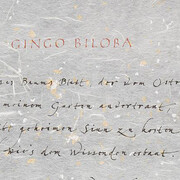 GINGO BILOBA
es Baums Blatt, der vom Ost
meinem Garten anvertraut
geheimen Sinn zu kosten
wie's den Wissenden erbaut.